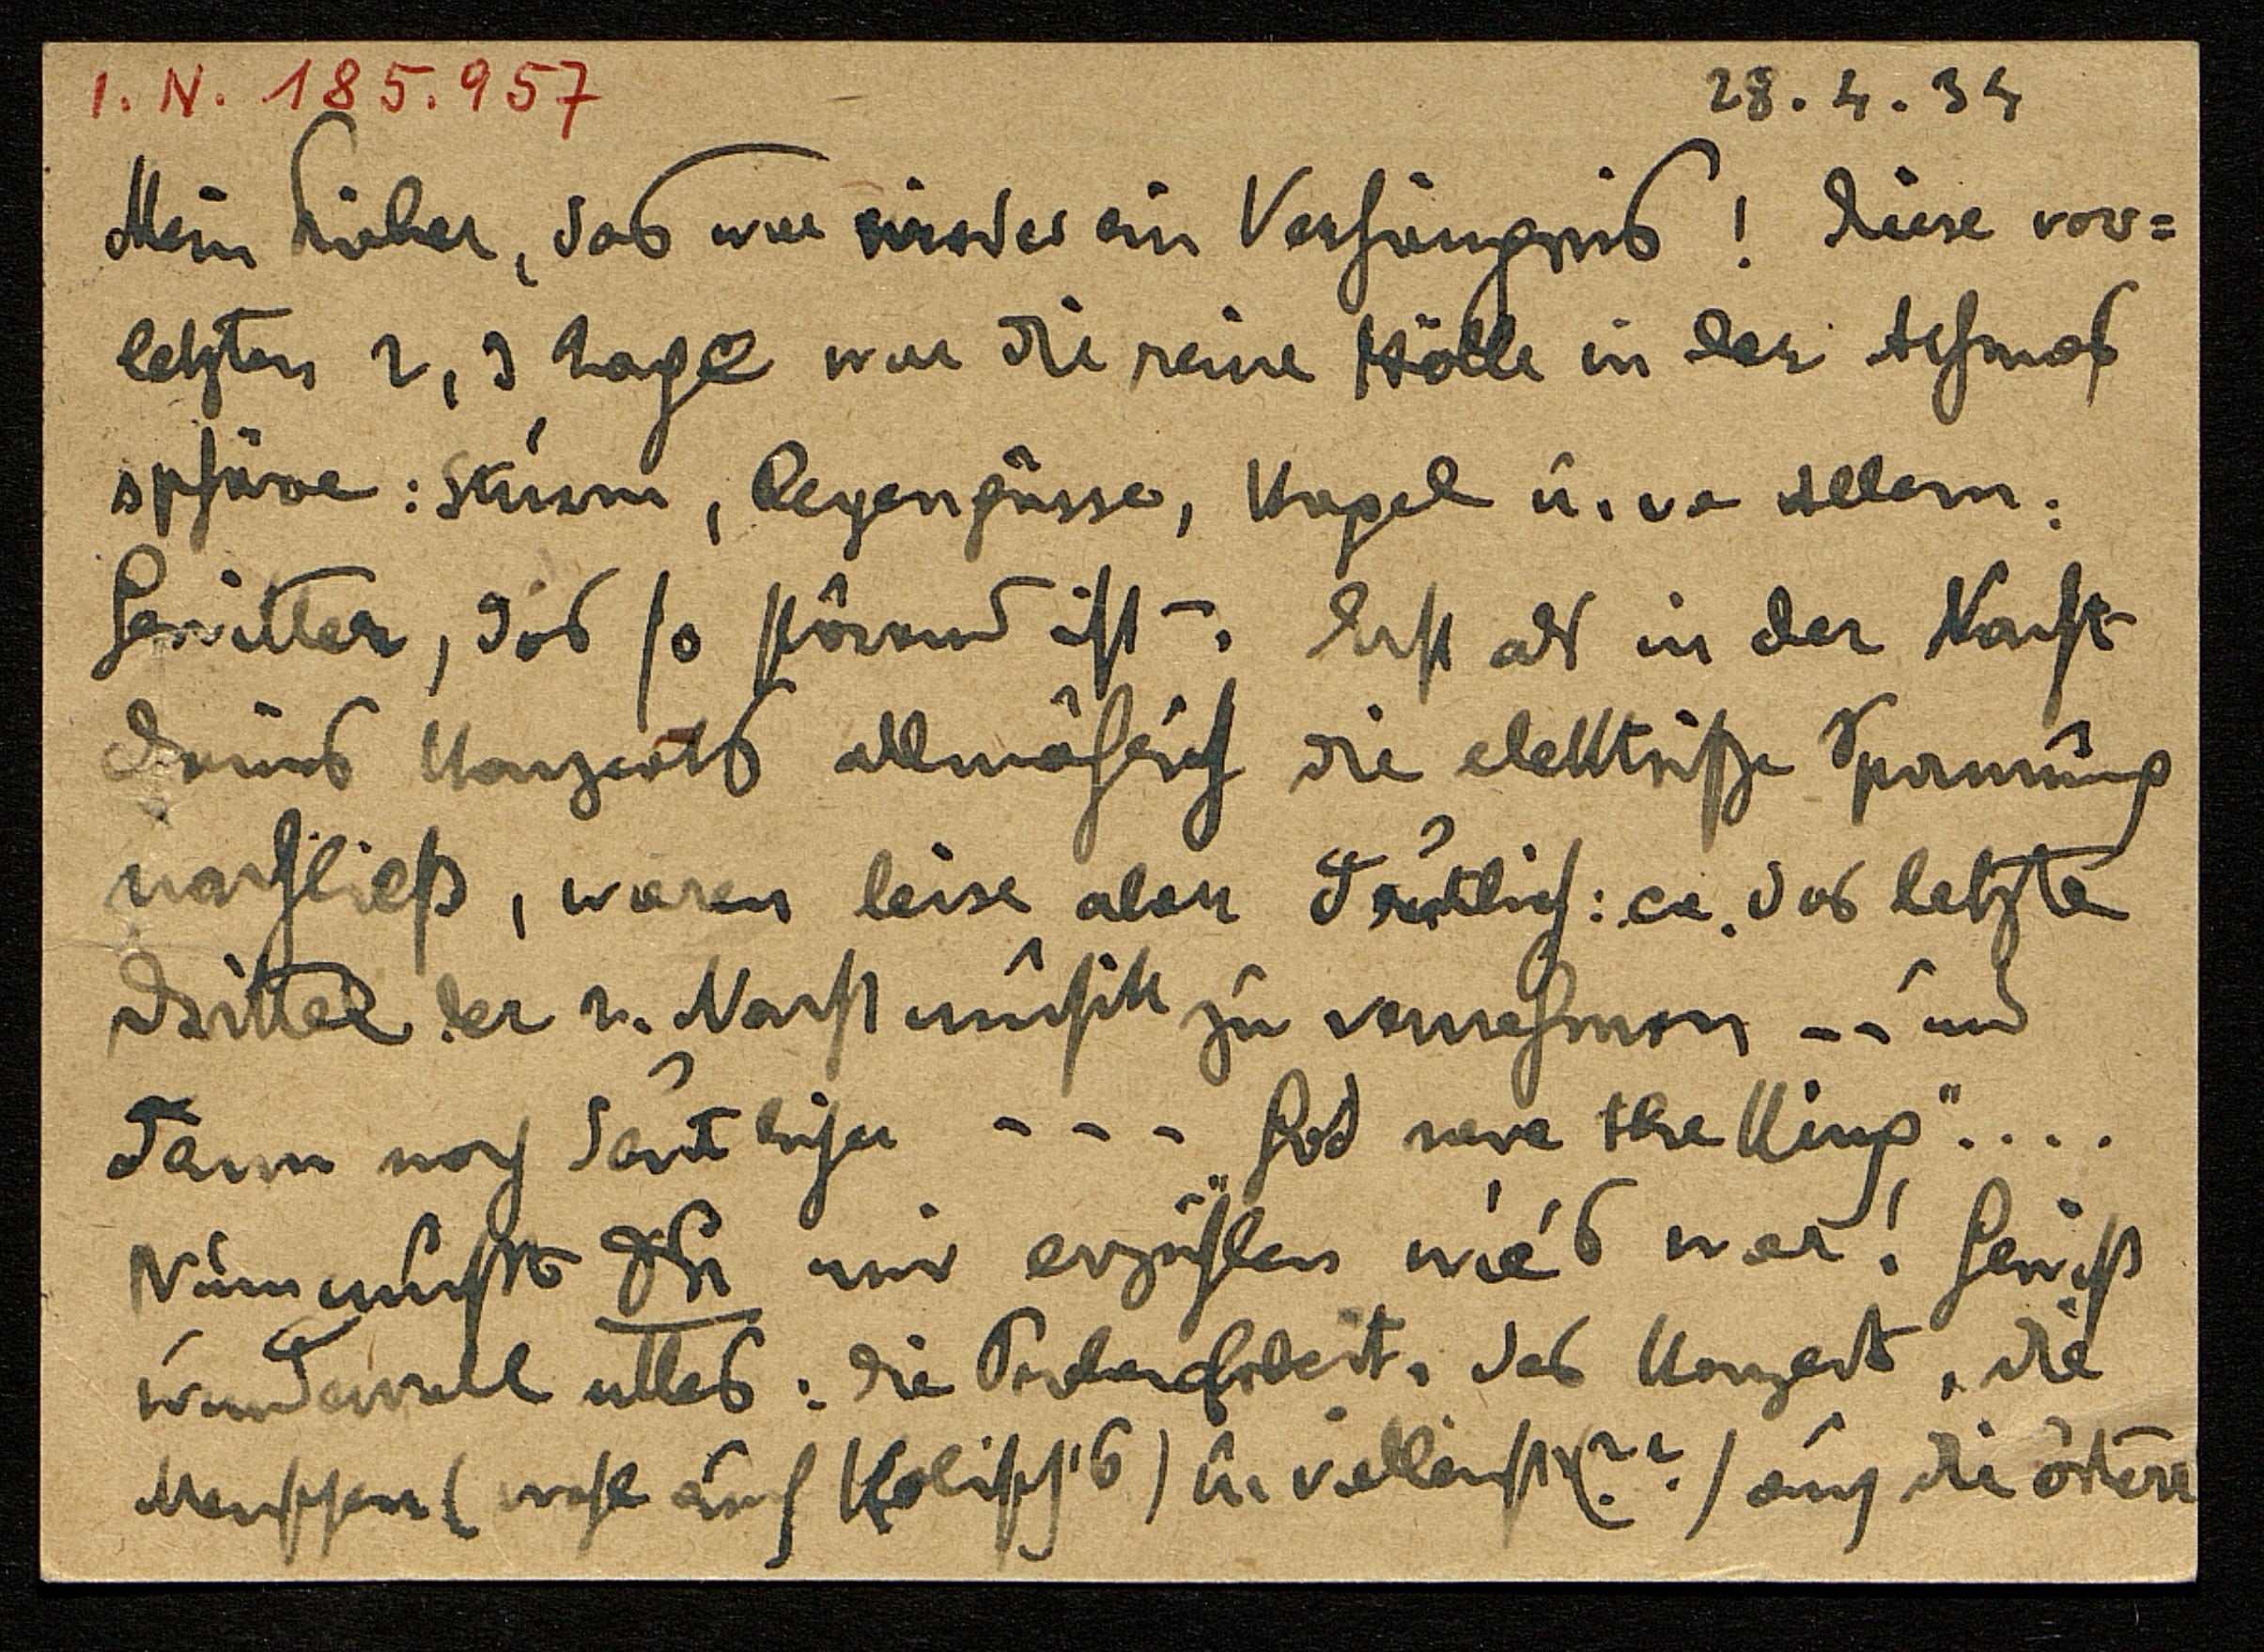 I. N. 185.957
28.4.34
Mein Lieber, das war wieder ein Verhängnis! Diese vor=
letzten 2, 3 Tage war die reine Hölle in der Athmos
sphäre: Sturm, Regengüsse, Hagel u. vor Allem:
Gewitter, das so störend ist –. Erst als in der Nacht
Deines Konzerts allmählich die elektrische Spannung
nachließ, waren leise aber deutlich: ca. das letzte
Drittel der 2. Nachtmusik zu vernehmen –– und
dann noch deutlicher ––– „God save the King"....
Nun mußt Du mir erzählen wie's war! Gewiß
wundervoll alles: die Probenarbeit, das Konzert, die
Menschen (wohl auch Kolisch's) u. vielleicht (??) auch die